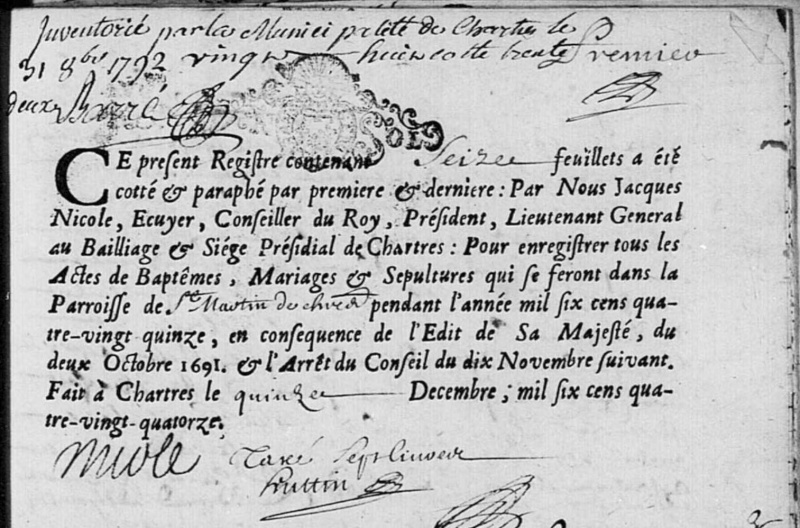 Inventorié par la Municipalité de Chartres le
31 8bre 1792 vingt huit cotte trente Premier
deux Barré
CE present Registre contenant Seize feüillets a été
cotté & paraphé par premiere & derniere : Par Nous Jacques
Nicole, Ecuyer, Conseiller du Roy, Président, Lieutenant General
au Bailliage & Siége Présidial de Chartres : Pour enregistrer tous les
Actes de Baptêmes, Mariages & Sepultures qui se feront dans la
Parroisse de St Martin de pendant l'année mil six cens qua-
tre-vingt quinze, en consequence de l'Edit de Sa Majesté, du
deux Octobre 1691. & l'Arrêt du Conseil du dix Novembre suivant.
Fait à Chartres le quinze Decembre, mil six cens qua-
tre-vingt-quatorze.
Nicole Taxé Sept